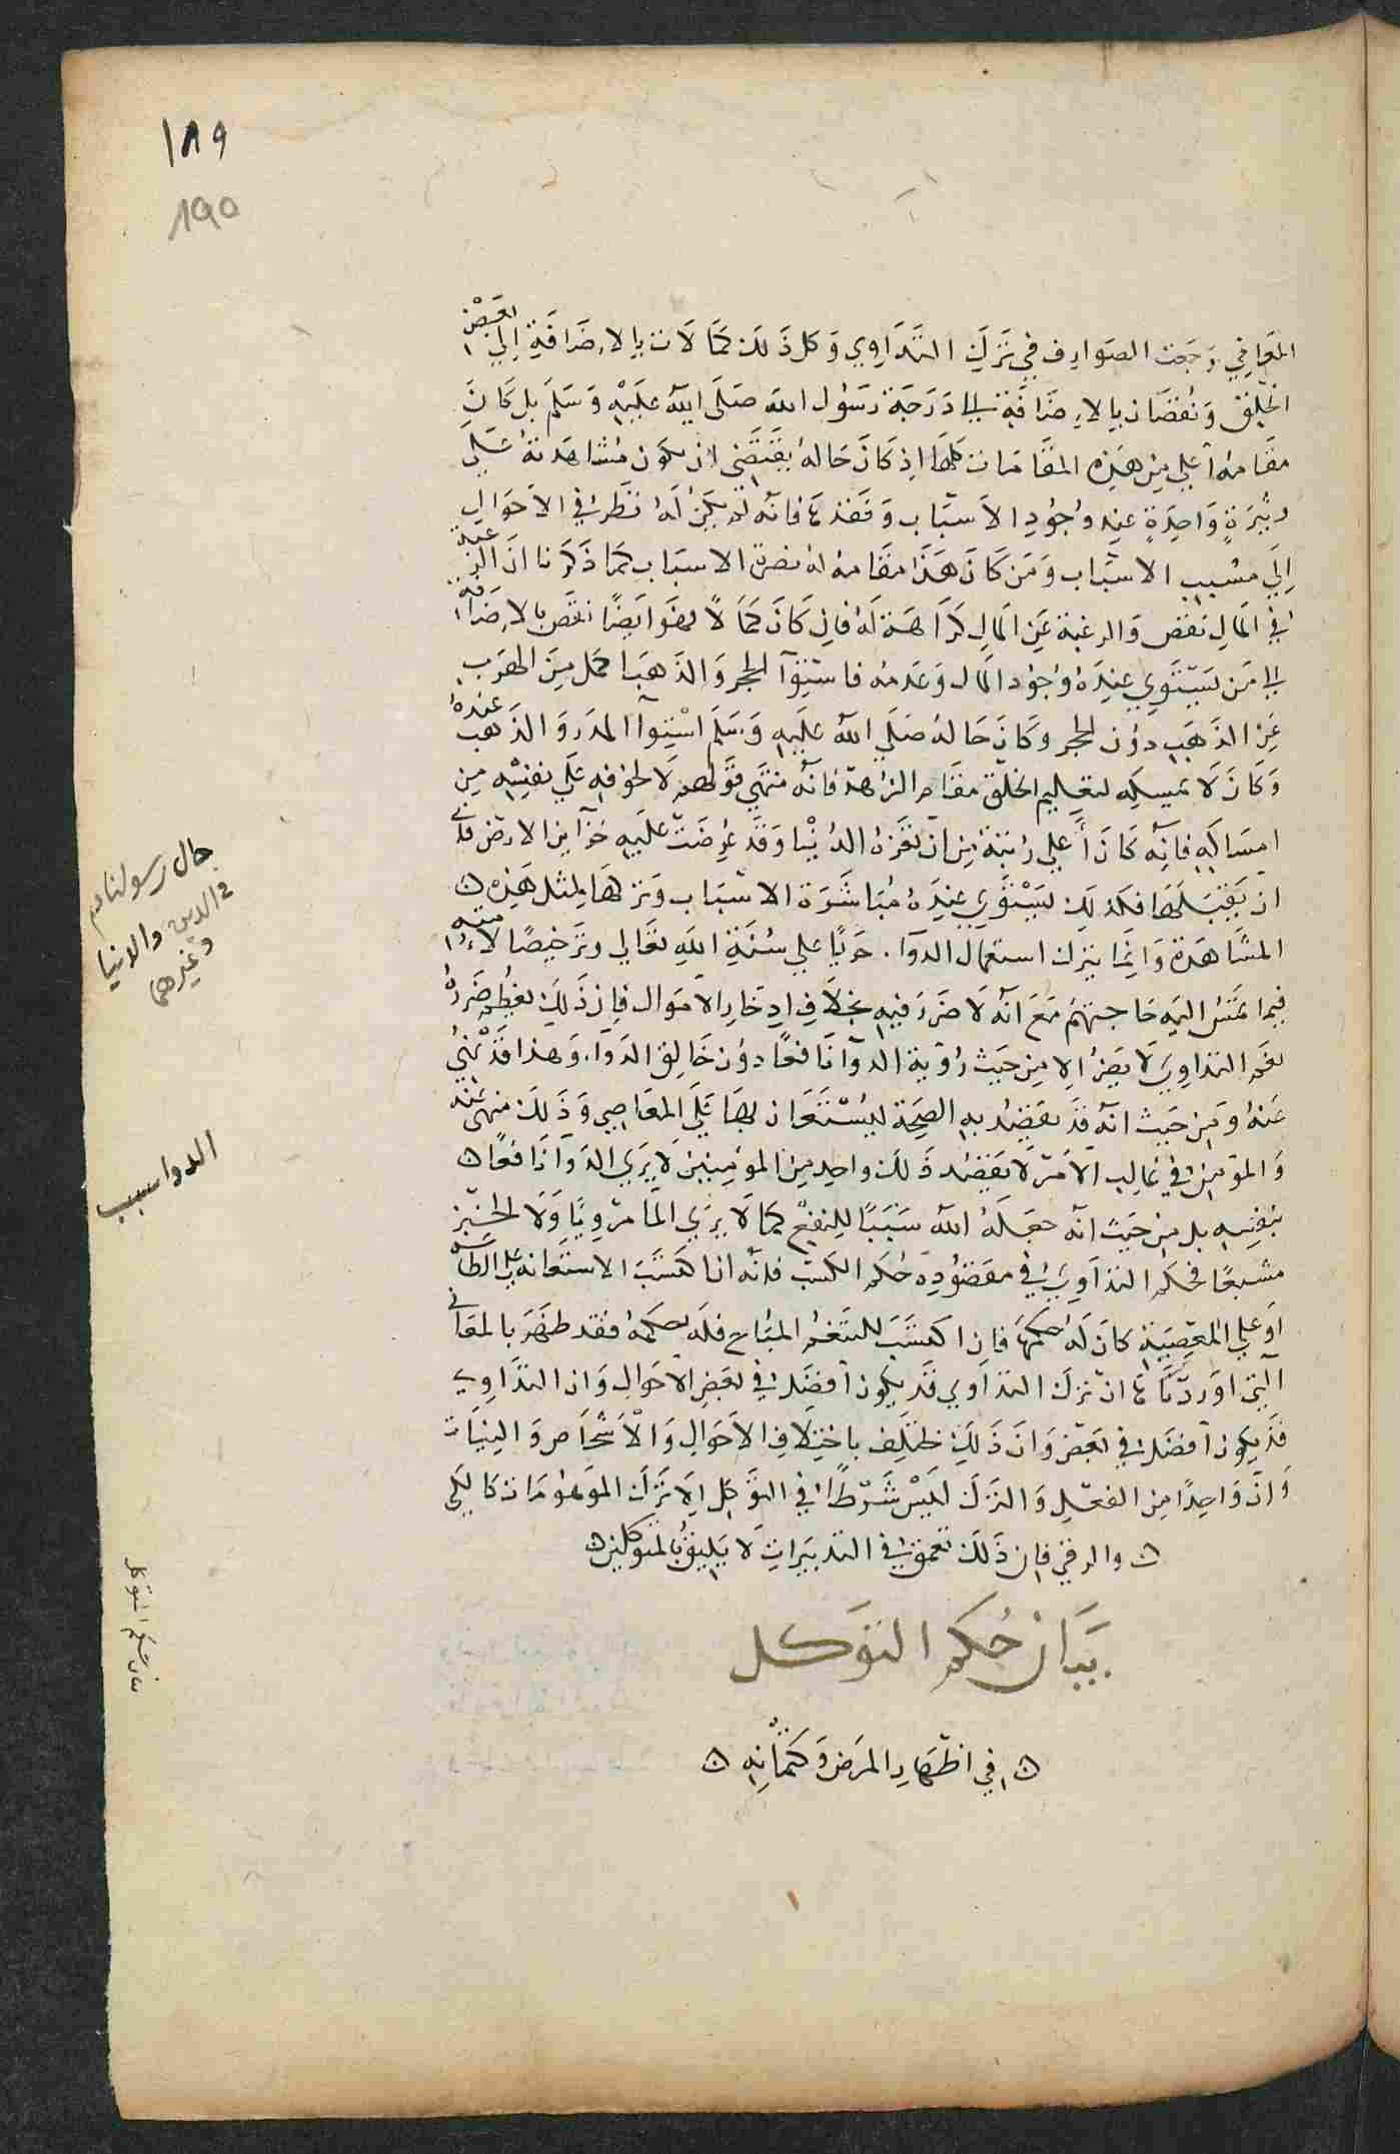 ١٨٩
190
المعاني رجعت الصوارف في ترك التداوي وكل ذلك كمالات بالاضافة الي بعض
الخلق ونقصان بالاضافة الي درجة رسول الله صلى الله عليه وسلم بل كان
مقامه اعلي من هذه المقامات كلها اذ كان حاله يقتضي ان يكون مشاهدته علي
وتيرة واحدة عند وجود الاسباب وفقدها فانه لم يكن له نظر في الاحوال
الي مسبب الاسباب ومن كان هذا مقامه لم تضره الاسباب كما ذكرنا ان الرغبة
في المال نقص والرغبة عن المال كراهة له فان كان كمالا فهو ايضا نقص بالاضافة
الي من يستوي عنده وجود المال وعدمه فاستوآ الحجر والذهب اكمل من الهرب
عن الذهب دون الحجر وكان حاله صلي الله عليه وسلم استوآ المدر والذهب عنده
وكان لا يمسكه لتعليم الخلق مقام الزاهد فانه منتهي قوتهم لا لخوفه علي نفسه من
امساكه فانه كان أعلي رتبة من ان تغره الدنيا وقد عرضت عليه خزآين الارض فابي
ان يقبلها فكذلك يستوي عنده مباشرة الاسباب وتركها لمثل هذه
المشاهدة وانما يترك استعمال الدوآ. جريا علي سنة الله تعالي وترخيصا لامته
فيما تمس اليه حاجتهم مع انه لا ضرر فيه بخلاف ادخار الاموال فان ذلك يعظم ضرره
نعم التداوي لا يضر الا من حيث رؤية الدوآ نافعا دون خالق الدوآ. وهذا قد نهي
عنه ومن حيث انه قد يقصد به الصحة ليستعان بها علي المعاصي وذلك منهي عنه
والمؤمن في غالب الامر لا يقصد ذلك واحد من المؤمنين لا يري الدوآ نافعا
بنفسه بل من حيث انه جعله الله سببا للنفع كما لا يري الما مرويا ولا الخبز
مشبعا فحكم التداوي في مقصوده حكم الكسب فانه ان اكتسب الاستعانة علي الطاعة
او علي المعصية كان له حكمها فان اكتسب للتنعم المباح فله حكمه فقد ظهر بالمعاني
التي اوردناها ان ترك التداوي قد يكون افضل في بعض الاحوال وان التداوي
قد يكون افضل في بعض وان ذلك يختلف باختلاف الاحوال والاشخاص والنيات
وان واحدا من الفعل والترك ليس شرطا في التوكل الا ترك الموهومات كالكي
والرقي فان ذلك تعمق في التدبيرات لا يليق بالمتوكلين
بيان حكم التوكل
في اظهار المرض وكتمانه
حال رسولنا عم
في الدين والدنيا
وغيرهما
الدوا سبب
بيان حكم التوكل